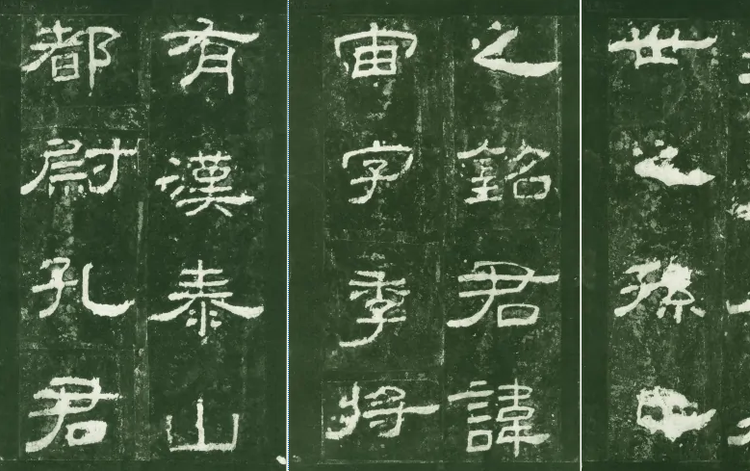 有漢泰山
都尉孔君
之銘君諱
宙字季將
世之孫也